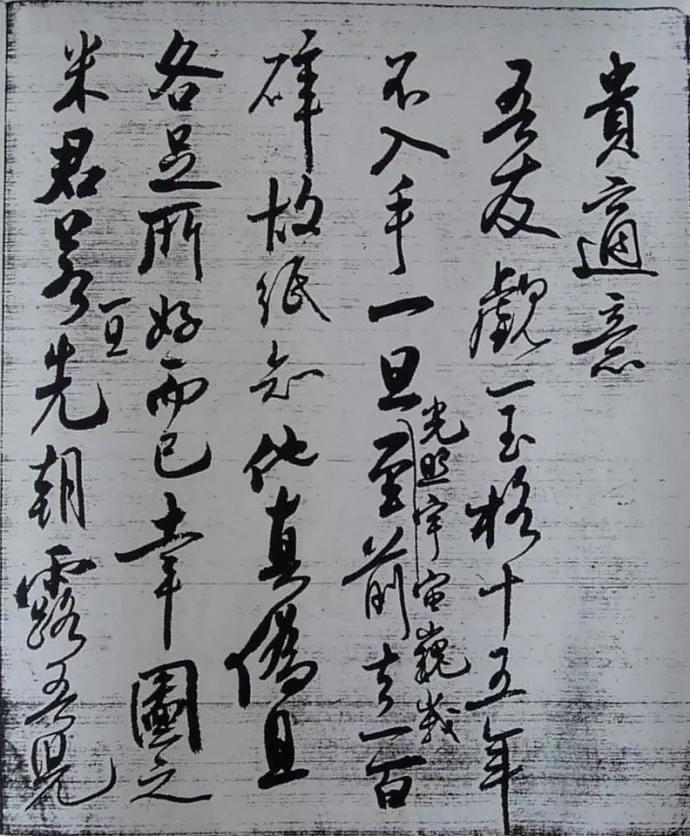 貴適意
吾友覷一玉格十五年
不入手一旦光照宇宙巍峩至前去一百
碎故紙知他真偽且
各足所好而已幸圖之
米君若一旦先朝露吾兒